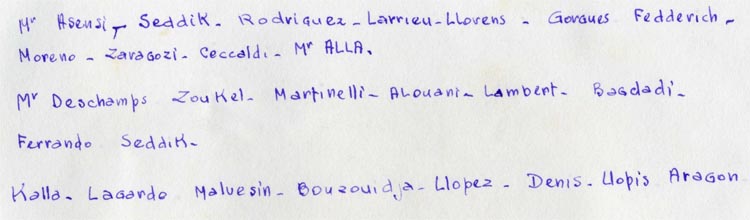 Mr Asensi, Seddik. Rodriguez - Larrieu - Llorens - Gorgues Fedderich -
Moreno - Zaragozi - Ceccaldi - Mr ALLA.
Mr Deschamps Zoukel - Martinelli - Alouani - Lambert - Bagdadi -
Ferrando Seddik -
Kalla - Lagardo Malvesin - Bouzouidja - Llopez - Denis - Llopis Aragon